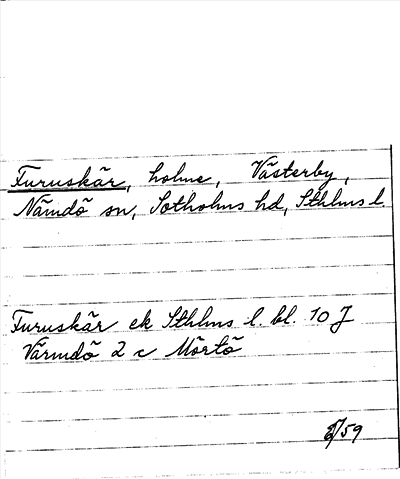 Furuskär, holme, Västerby,
Nämdö sn, Sotholms hd, Sthlms l.
Furuskär ek Sthlms l. bl. 10 J
Värmdö 2 c Mörtö
/59